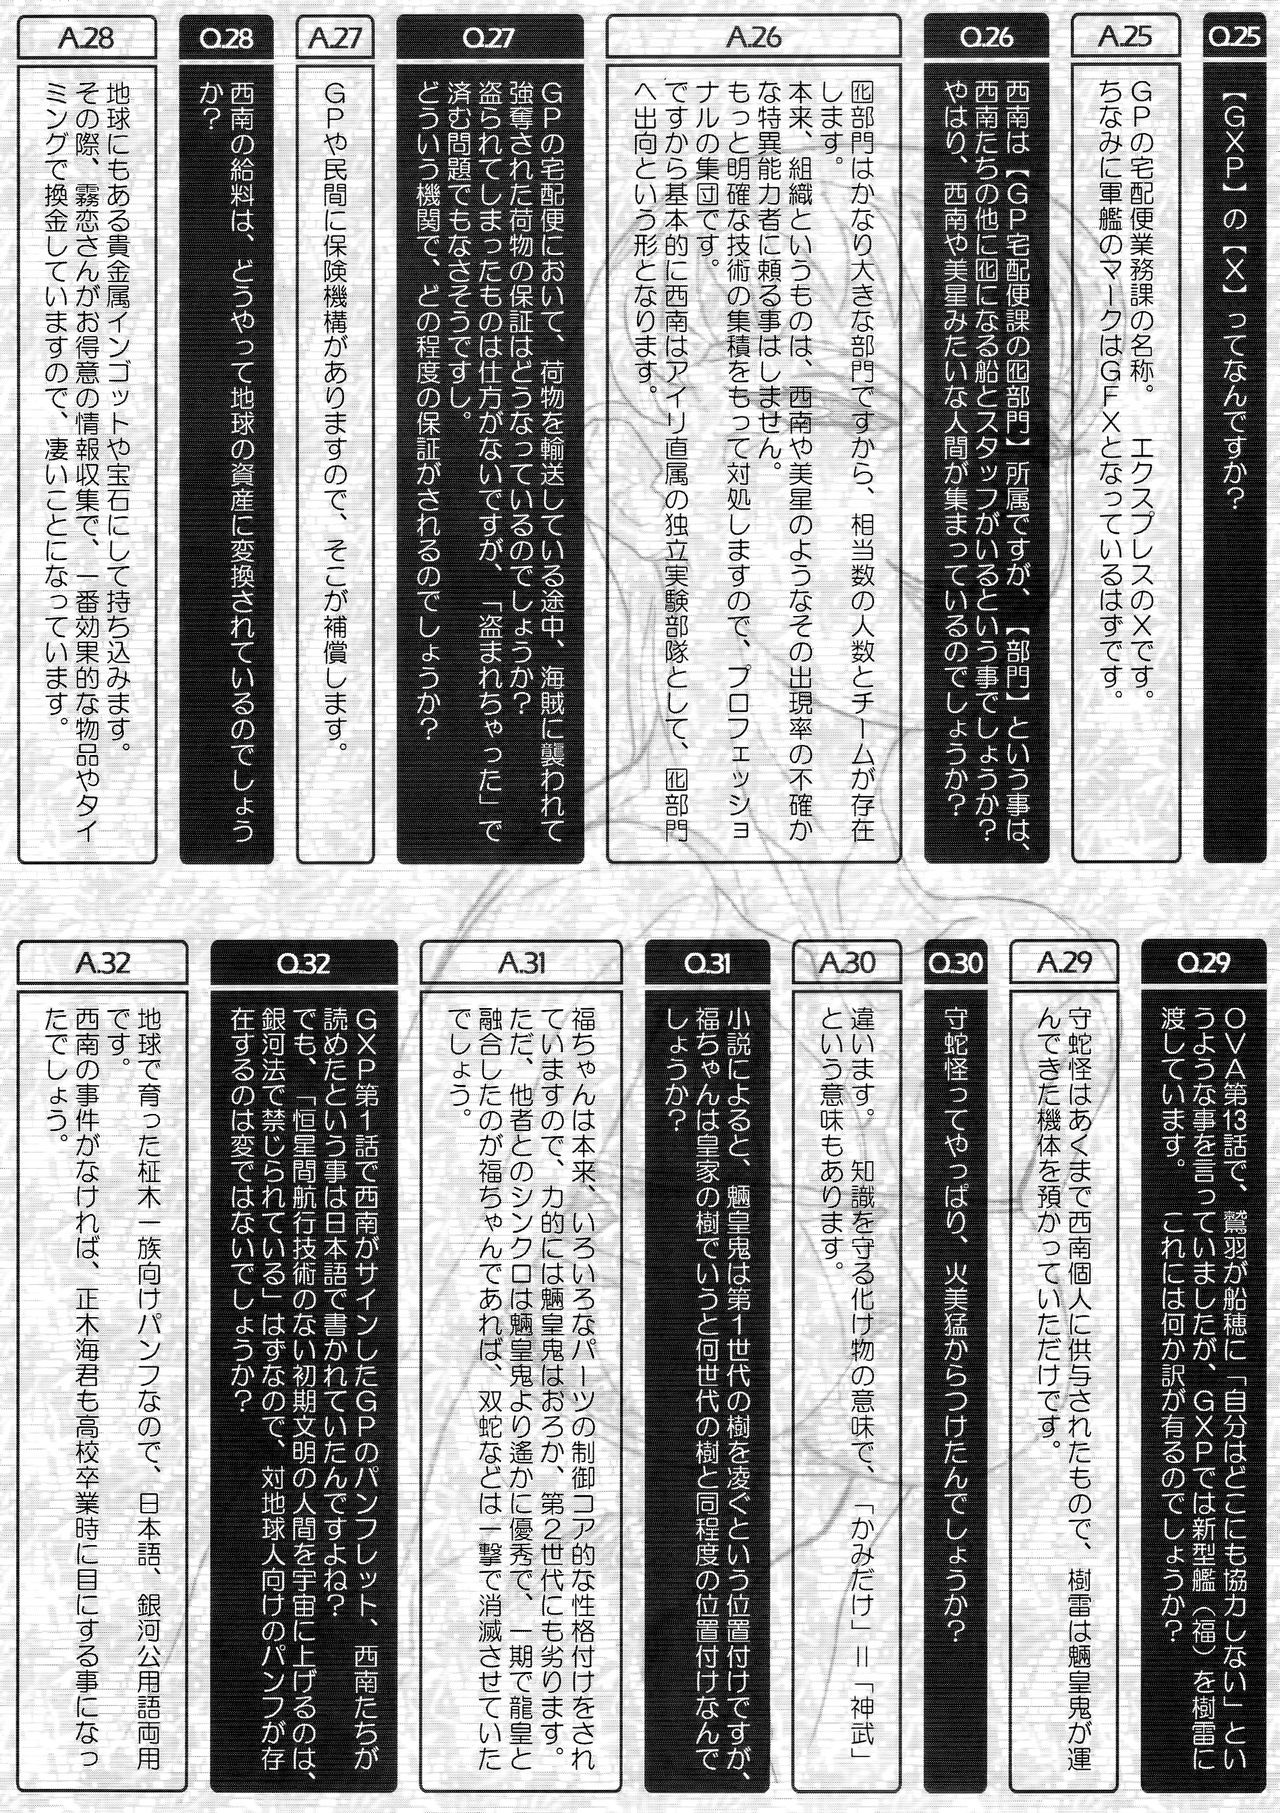 Q.25
【GXP】の【X】ってなんですか？
A.25
GPの宅配便業務課の名称。　エクスプレスのXです。
ちなみに軍艦のマークはGFXとなっているはずです。
Q.26
西南は【GP宅配便課の囮部門】所属ですが、【部門】という事は、
西南たちの他に囮になる船とスタッフがいるという事でしょうか？
やはり、西南や美星みたいな人間が集まっているのでしょうか？
A.26
囮部門はかなり大きな部門ですから、相当数の人数とチームが存在
します。
本来、組織というものは、西南や美星のようなその出現率の不確か
な特異能力者に頼る事はしません。
もっと明確な技術の集積をもって対処しますので、プロフェッショ
ナルの集団です。
ですから基本的に西南はアイリ直属の独立実験部隊として、囮部門
へ出向という形となります。
Q.27
GPの宅配便において、荷物を輸送している途中、海賊に襲われて
強奪された荷物の保証はどうなっているのでしょうか？
盗られてしまったものは仕方がないですが、「盗まれちゃった」で
済む問題でもなさそうですし。
どういう機関で、どの程度の保証がされるのでしょうか？
A.27
GPや民間に保険機構がありますので、そこが補償します。
Q.28
西南の給料は、どうやって地球の資産に変換されているのでしょう
か？
A.28
地球にもある貴金属インゴットや宝石にして持ち込みます。
その際、霧恋さんがお得意の情報収集で、一番効果的な物品やタイ
ミングで換金していますので、凄いことになっています。
Q.29
OVA第13話で、鷲羽が船穂に「自分はどこにも協力しない」とい
うような事を言っていましたが、GXPでは新型艦（福）を樹雷に
渡しています。　これには何か訳が有るのでしょうか？
A.29
守蛇怪はあくまで西南個人に供与されたもので、樹雷は魎皇鬼が運
んできた機体を預かっていただけです。
Q.30
守蛇怪ってやっぱり、火美猛からつけたんでしょうか？
A.30
違います。　知識を守る化け物の意味で、「かみだけ」＝「神武」
という意味もあります。
Q.31
小説によると、魎皇鬼は第1世代の樹を凌ぐという位置付けですが、
福ちゃんは皇家の樹でいうと何世代の樹と同程度の位置付けなんで
しょうか？
A.31
福ちゃんは本来、いろいろなパーツの制御コア的な性格付けをされ
ていますので、力的には魎皇鬼はおろか、第2世代にも劣ります。
ただ、他者とのシンクロは魎皇鬼より遙かに優秀で、一期で龍皇と
融合したのが福ちゃんであれば、双蛇などは一撃で消滅させていた
でしょう。
Q.32
GXP第1話で西南がサインしたGPのパンフレット、西南たちが
読めたという事は日本語で書かれていたんですよね？
でも、「恒星間航行技術のない初期文明の人間を宇宙に上げるのは、
銀河法で禁じられている」はずなので、対地球人向けのパンフが存
在するのは変ではないでしょうか？
A.32
地球で育った柾木一族向けパンフなので、日本語、銀河公用語両用
です。
西南の事件がなければ、正木海君も高校卒業時に目にする事になっ
たでしょう。